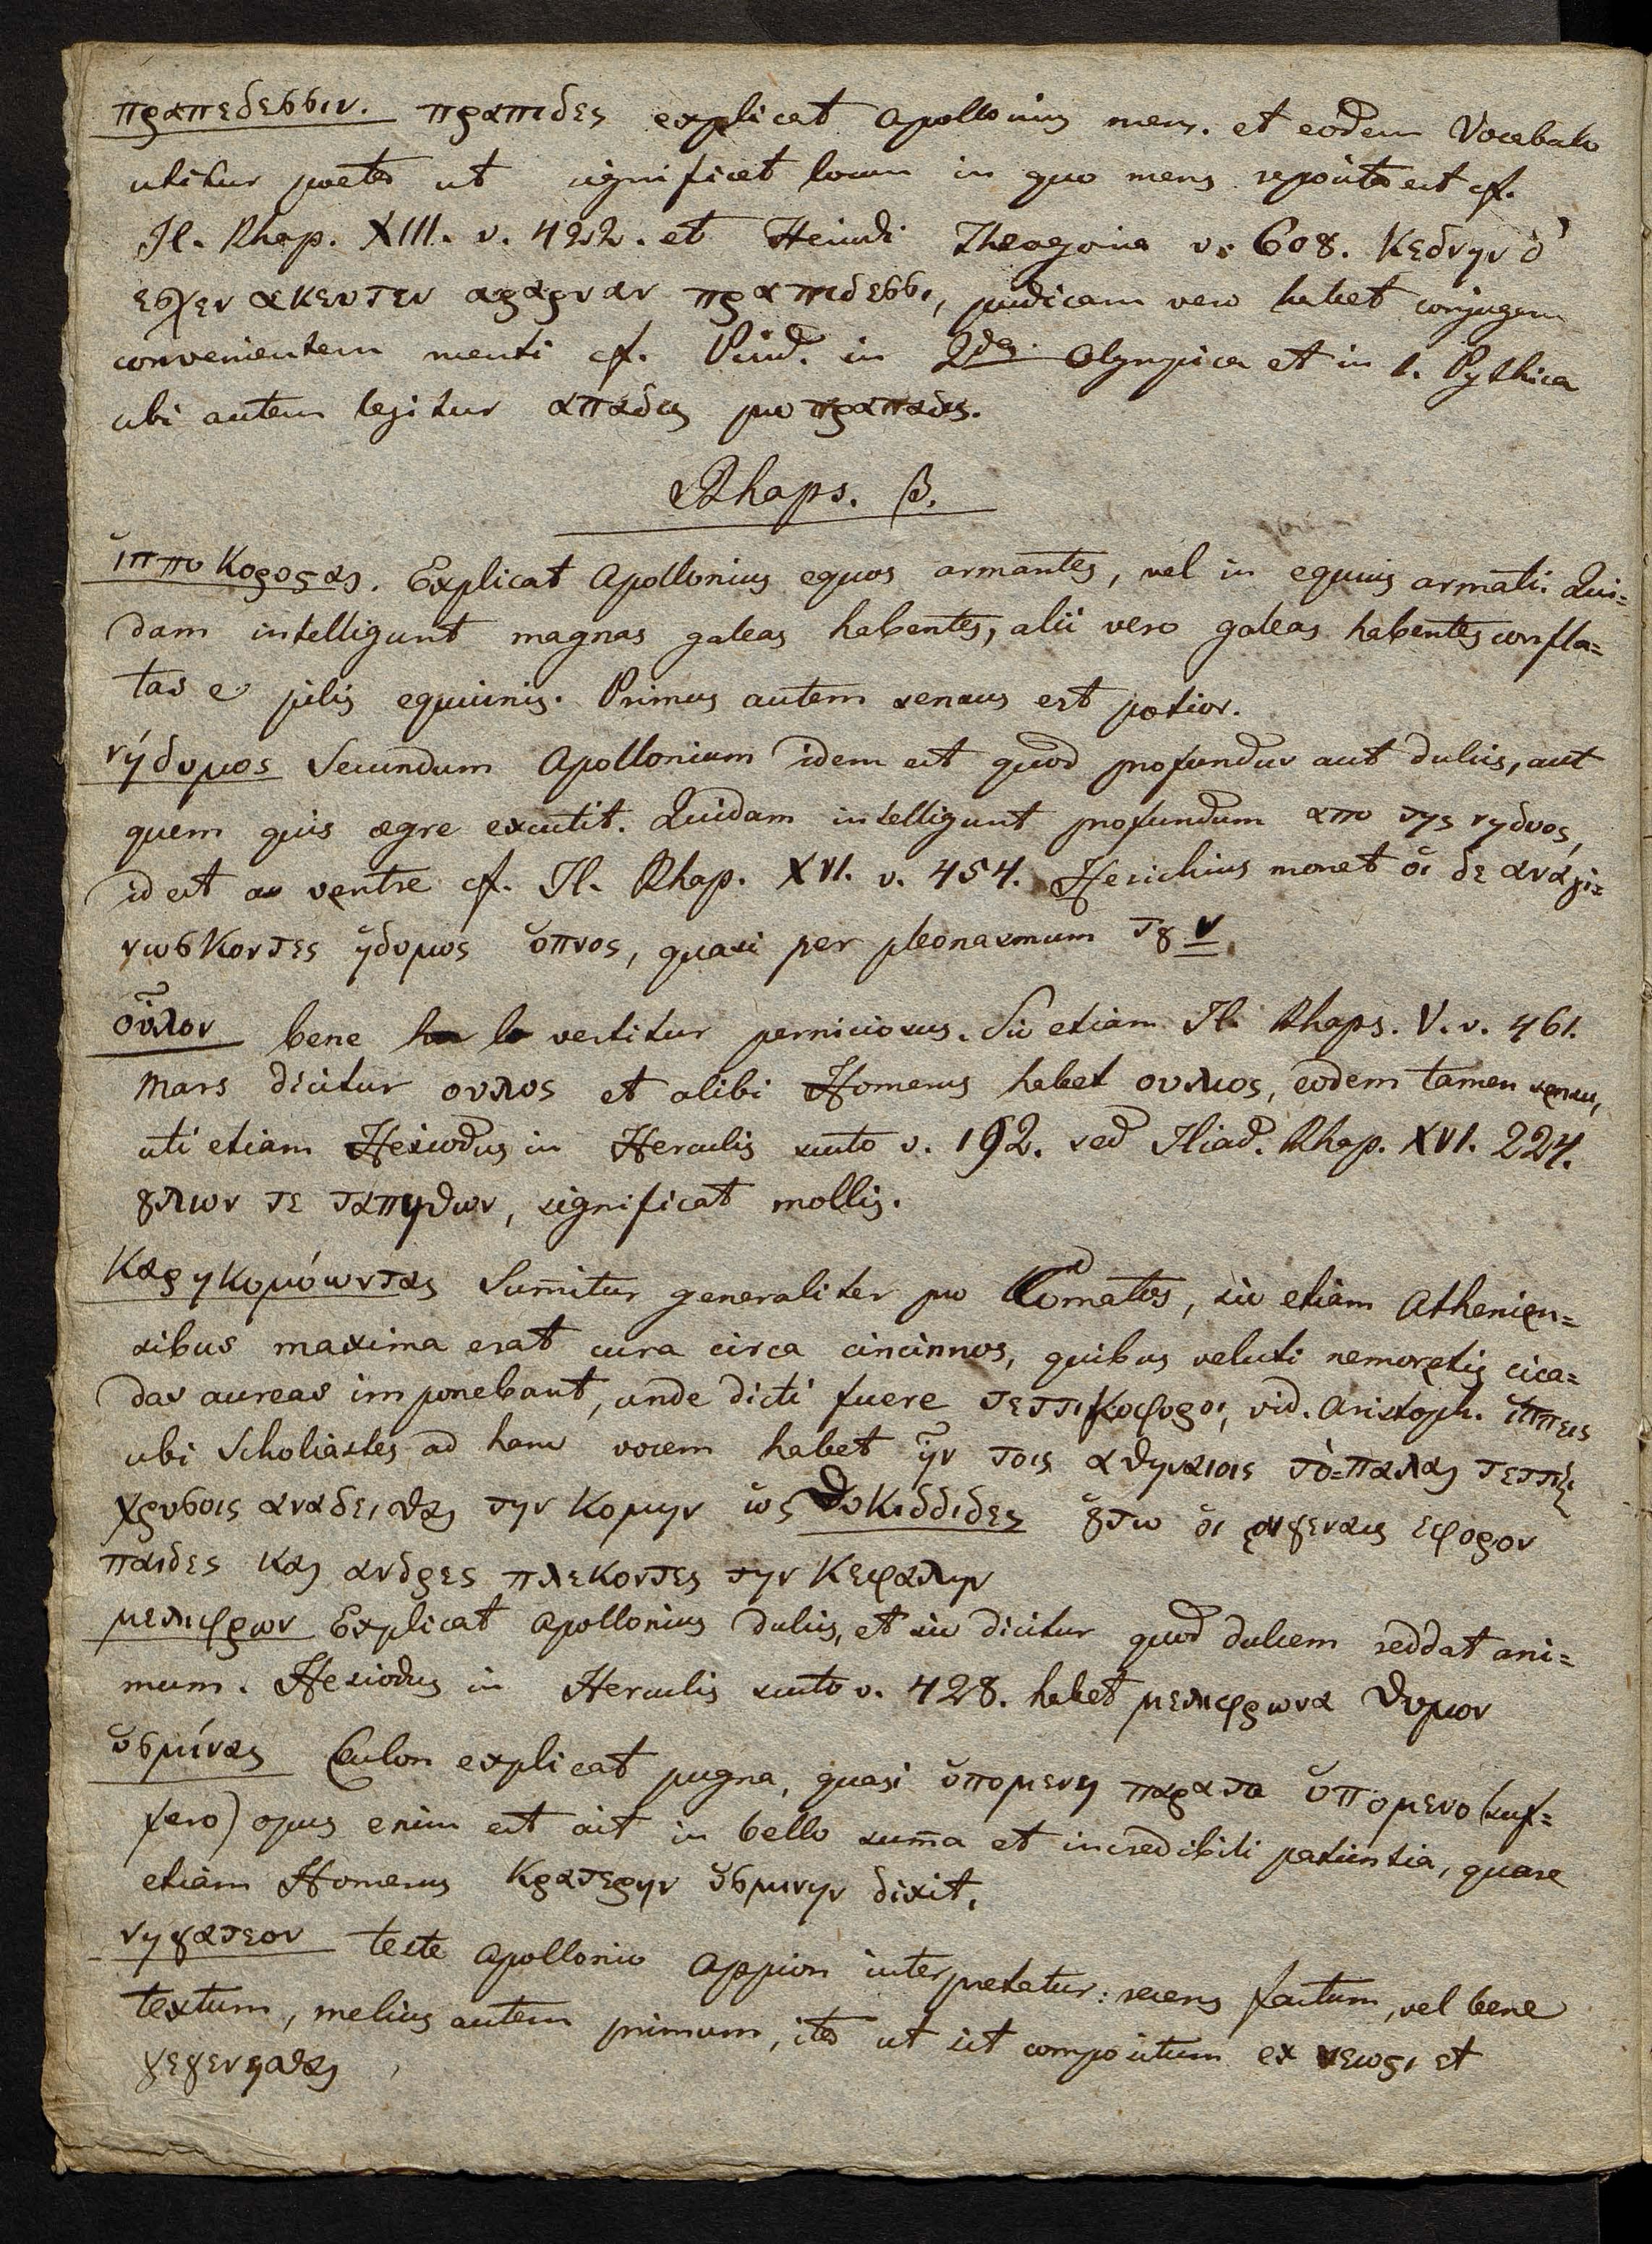 πραπεδεσσιν. πραπιδες explicat Apollonius mens. et eodem Vocabulo
utitur poeta ut significet locum in quo mens reposita est cf.
Il. Rhap. XIII. v. 422. et Hesiodi Theogonia v. 608. Κεδνην δ'
εσχεν ακευτεν αραρυαν πραπιδεσσι, pudicam vero habet conjugem
convenientem menti cf. Pind. in 2da. Olympica et in 1. Pythica
ubi autem legitur απαδας pro πραπαδας.
Rhaps. β.
ἱππο Κορυσαι. Explicat Apollonius equos armantes, vel in equis armati. Qui=
dam intelligunt magnas galeas habentes, alii vero galeas habentes confla=
tas e pilis equinis. Primus autem sensus est potior.
νήδυμος Secundum Apollonium idem est quod profundus aut dulcis, aut
quem quis aegre excutit. Quidam intelligunt profundum απο της νηδυος,
id est a ventre cf. Il. Rhap. XVI. v. 454. Hesichius monet ὁι δε αναγι=
νωσκοντες ἡδυμος ὑπνος, quasi per pleonasmum τȣ ν
οὖλον bene vertitur perniciosus. Sic etiam Il. Rhaps. V. v. 461.
Mars dicitur ουλος et alibi Homerus habet ουλιος, eodem tamen sensu,
uti etiam Hesiodus in Herculis scuto v. 192. sed Iliad. Rhap. XVI. 224.
ȣλων τε ταπηθων, significat mollis.
Καρηκομόωντας Sumitur generaliter pro Comatos, sic etiam Athenien=
sibus maxima erat cura circa cincinnos, quibus veluti nemoretis cica=
das aureas imponebant, unde dicti fuere τεττικοφοροι, vid. Aristoph. ἱππεις
ubi Scholiastes ad hanc vocem habet ἠν τοις αθηναιοις τὸ=παλαι τεττιξι
χρυσοις αναδειθαι την Κομην ὡς Θυκιδδιδες ȣτω ὁι ευγεναις εφορον
παιδες και ανδρες πλεκοντες την Κεφαλην
μελιφρων Explicat Apollonius dulcis, et sic dicitur quod dulcem reddat ani=
mum. Hesiodus in Herculis scuto v. 428. habet μελιφρωνα θυμον
ὑσμίνας Culon explicat pugna, quasi ὑπομενη παρα το ὑπομενο (suf=
fero) opus enim est ait in bello summa et incredibili patientia, quare
etiam Homerus Κρατερην ὑσμινην dixit.
νηγατεον teste Apollonio Appion interpretatur: recens factum, vel bene
textum, melius autem primum, ita ut sit compositum ex νεωρι et
γεγενησθαι